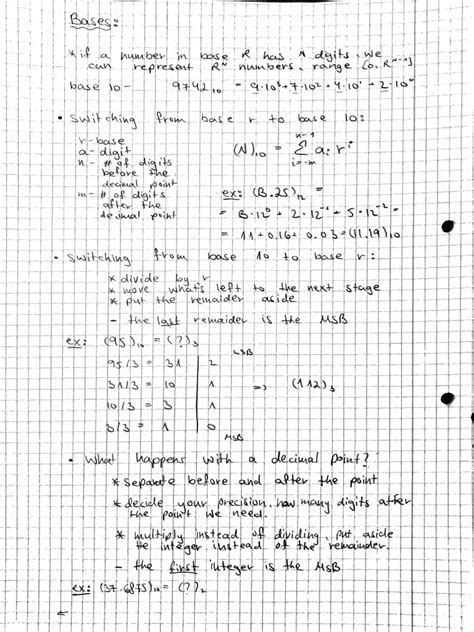 Bases:
* if a number in base R has N digits, we
can represent R^N numbers, range [0, R^N-1]
base 10 - 9742₁₀ = 9·10³+7·10²+4·10¹+2·10⁰
• Switching from base r to base 10:
r - base
a - digit
n - # of digits
before the
decimal point
m - # of digits
after the
decimal point
(N)₁₀ = Σ aᵢ rⁱ
n-1
i=-m
ex: (B.25)₁₂ =
= B·12⁰ + 2·12⁻¹ + 5·12⁻² =
= 11 + 0.16 + 0.03 = (11.19)₁₀
• Switching from base 10 to base r:
* divide by r
* move what's left to the next stage
* put the remaider aside
- the last remaider is the MSB
ex: (95)₁₀ = (?)₃
LSB
95/3 = 31 | 2
31/3 = 10 | 1 => (112)₃
10/3 = 3 | 1
3/3 = 1 | 0
MSB
• What happens with a decimal point?
* separate before and after the point
* decide your precision, how many digits after
the point we need.
* multiply instead of dividing, put aside
the integer instead of the remainder.
- the first integer is the MSB
ex: (37.6875)₁₀ = (?)₂